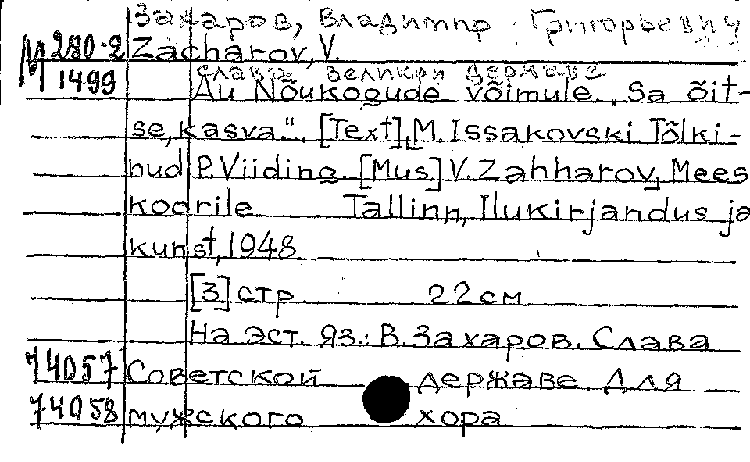 Захаров, Владимир Григорьевич
М 280-2 Zacharov, V.
слава великой державе
1499 Au Nõukogude võimule. „Sa õit-
se, kasva“. [Text], M. Issakovski Tõlki-
nud P. Viiding. [Mus] V. Zahharov, Mees
koorile Tallinn, Ilukirjandus ja
kunst, 1948
[3] стр 22 см
На эст. яз.: В. Захаров. Слава
74057 Советской державе. Для
74058 мужского хора